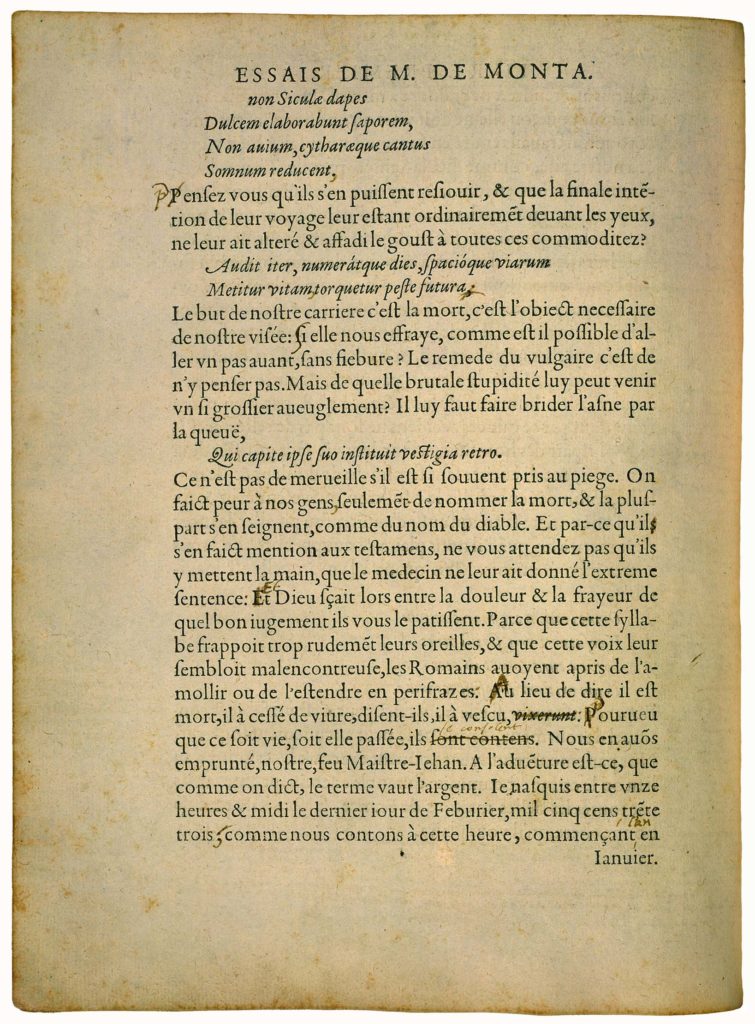 ESSAIS DE M. DE MONTA.
non Siculæ dapes
Dulcem elaborabunt ſaporem,
Non auium, cytharæque cantus
Somnum reducent,
Penſez vous qu'ils s'en puiſſent reſiouir, & que la finale intẽ-
tion de leur voyage leur eſtant ordinairemẽt deuant les yeux,
ne leur ait alteré & affadi le gouſt à toutes ces commoditez?
Audit iter, numerátque dies, ſpacióque viarum
Metitur vitam, torquetur peſte futura,
Le but de noſtre carriere c'eſt la mort, c'eſt l'obiect neceſſaire
de noſtre viſée: ſi elle nous effraye, comme est il poſſible d'al-
ler vn pas auant, ſans fiebure? Le remede du vulgaire c'eſt de
n'y penſer pas. Mais de quelle brutale ſtupidité luy peut venir
vn ſi groſſier aueuglement? Il luy faut faire brider l'aſne par
la queuë,
Qui capite ipſe ſuo inſtituit veſtigia retro.
Ce n'eſt pas de merueille s'il eſt ſi ſouuent pris au piege. On
faict peur à nos gens, ſeulemẽt de nommer la mort, & la pluſ-
part s'en ſeignent, comme du nom du diable. Et par-ce qu'il
s'en faict mention aux teſtamens, ne vous attendez pas qu'ils
y mettent la main, que le medecin ne leur ait donné l'extreme
ſentence: Et Dieu ſçait lors entre la douleur & la frayeur de
quel bon iugement ils vous le patiſſent. Parce que cette ſylla-
be frappoit trop rudemẽt leurs oreilles, & que cette voix leur
ſembloit malencontreuſe, les Romains auoyent apris de l'a-
mollir ou de l'eſtendre en perifrazes. Au lieu de dire il eſt
mort, il à ceſſé de viure, diſent-ils, il à veſcu, vixerunt: Pourueu
que ce ſoit vie, ſoit elle paſſée, ils ſont contens. Nous en auõs
se consolent
emprunté, noſtre, feu Maiſtre-Iehan. A l'aduẽture eſt-ce, que
comme on dict, le terme vaut l'argent. Ie naſquis entre vnze
heures & midi le dernier iour de Feburier, mil cinq cens trẽte
trois, comme nous contons à cette heure, commençant en
l'an
Ianuier.